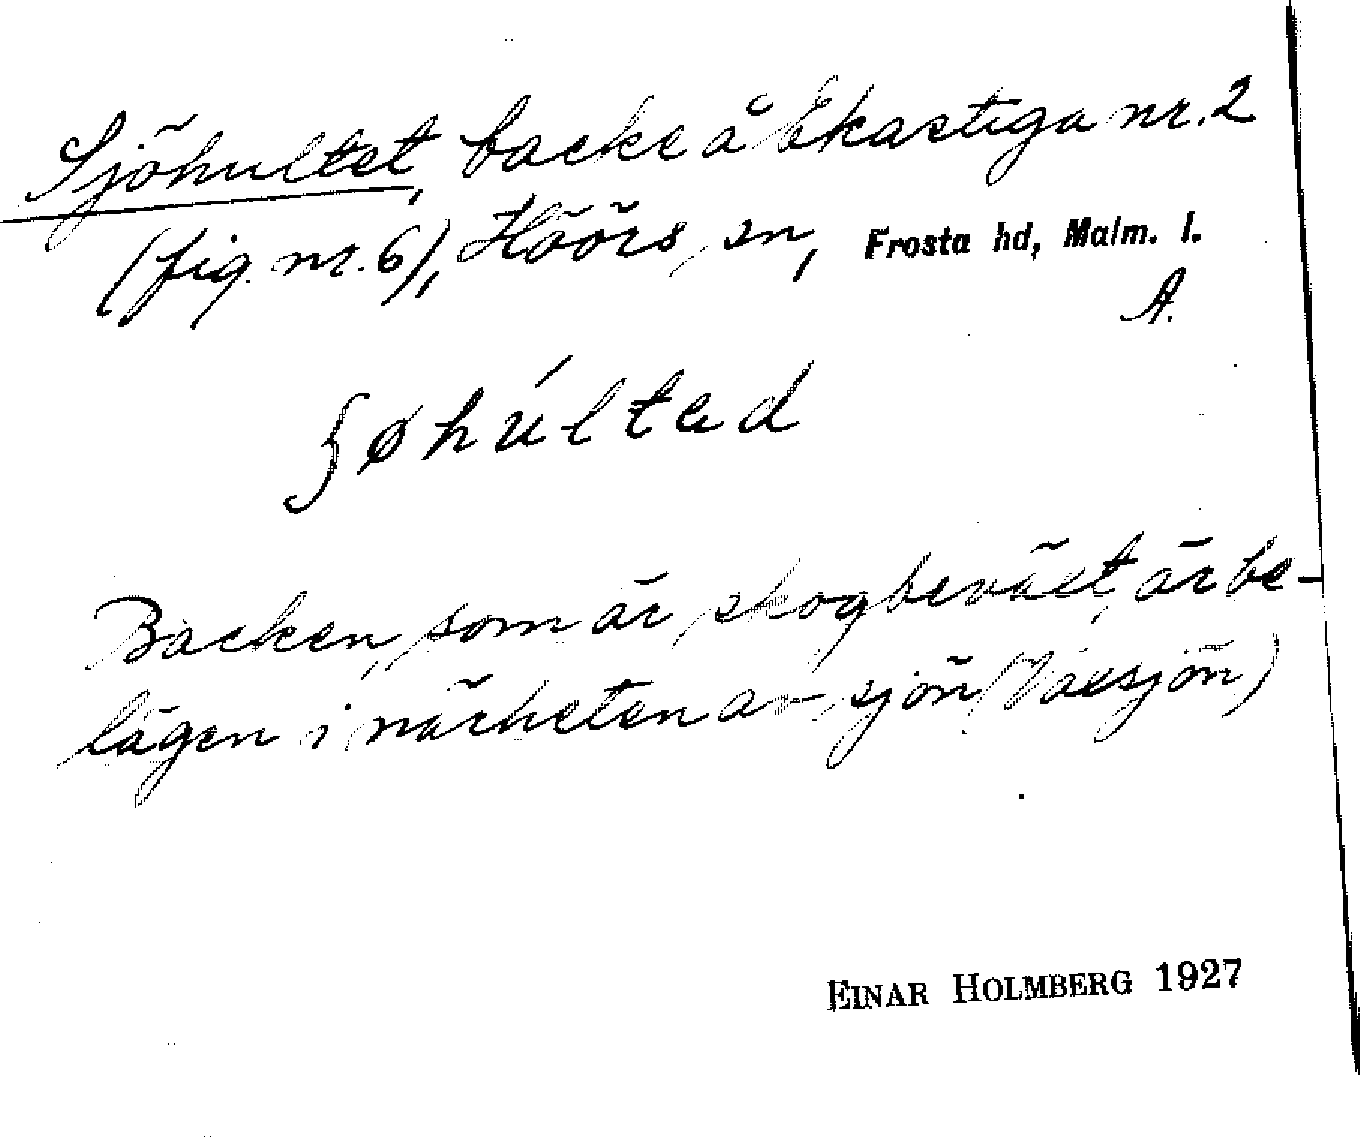 Sjöhultet, backe å Ekastiga nr. 2
(fig. nr. 6), Höörs sn, Frosta hd, Malm. l.
A.
ʃøhúltəd
Backen, som är skogbeväxt, är be-
lägen i närheten av sjön (Vaxsjön)
EINAR HOLMBERG 1927